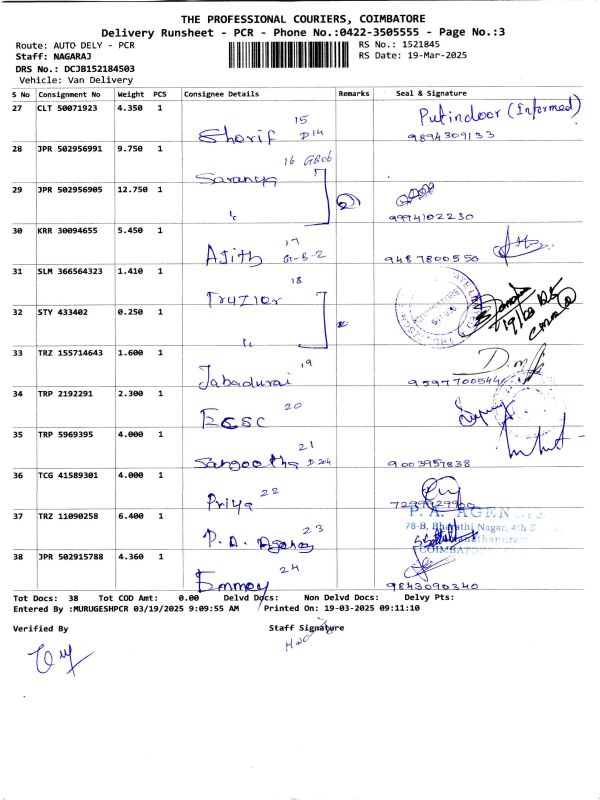 THE PROFESSIONAL COURIERS, COIMBATORE
Delivery Runsheet - PCR - Phone No.:0422-3505555 - Page No.:3
Route: AUTO DELY - PCR
RS No.: 1521845
Staff: NAGARAJ
RS Date: 19-Mar-2025
DRS No.: DCJB152184503
Vehicle: Van Delivery
S No Consignment No Weight PCS Consignee Details Remarks Seal & Signature
27 CLT 50071923 4.350 1
15
Putindoor (Informed)
Sharif D14
9894309133
28 JPR 502956991 9.750 1
16
Saranya
29 JPR 502956905 12.750 1
9974102230
30 KRR 30094655 5.450 1
17
Ajith G1-B-2
9487800550
31 SLM 366564323 1.410 1
18
32 STY 433402 0.250 1
33 TRZ 155714643 1.600 1
19
Jabadurai
9597700544
34 TRP 2192291 2.300 1
20
ECSC
35 TRP 5969395 4.000 1
21
Sangeetha D204
9003957838
36 TCG 41589301 4.000 1
22
Priya
37 TRZ 11090258 6.400 1
P. A. AGEN
23
78-B, Bharathi Nagar, 4th
P. A. Agency
COIMBATO
38 JPR 502915788 4.360 1
24
9843090340
Tot Docs: 38 Tot COD Amt: 0.00 Delvd Docs: Non Delvd Docs: Delvy Pts:
Entered By :MURUGESHPCR 03/19/2025 9:09:55 AM Printed On: 19-03-2025 09:11:10
Verified By
Staff Signature